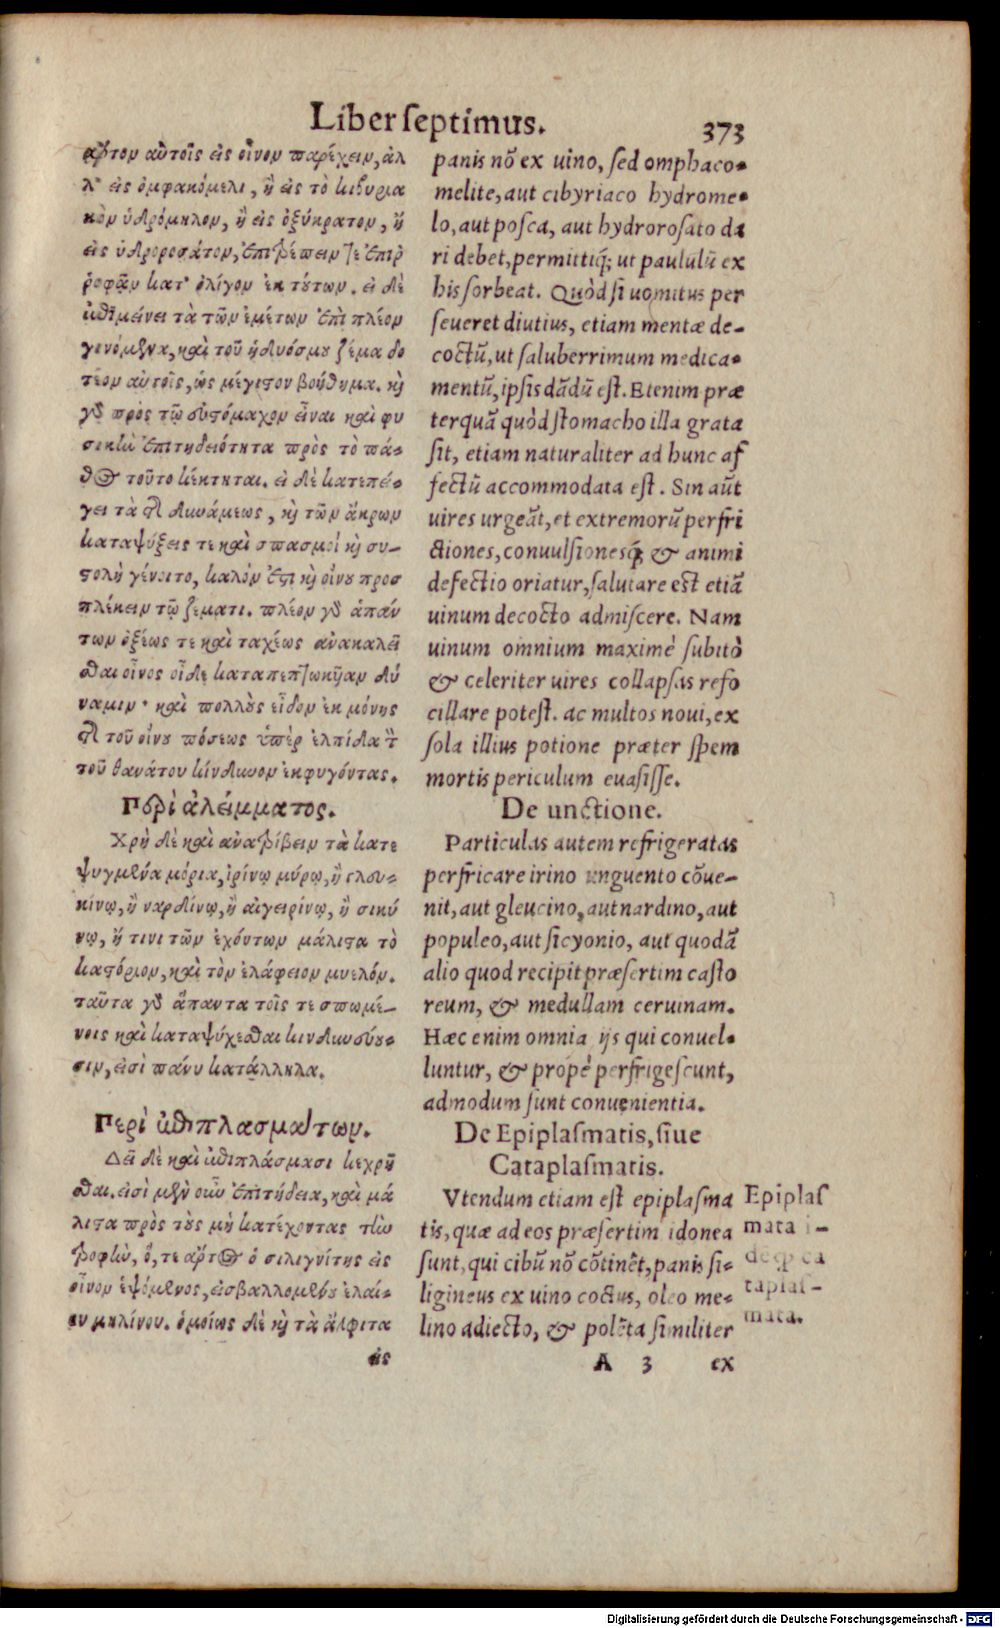 Liber ſeptimus. 373
ἄρτον αὐτοῖς εἰς οἶνον παρέχειν, ἀλ
λ' εἰς ὀμφακόμελι, ἢ εἰς τὸ κιβυρια
κὸν ὑδρόμηλον, ἢ εἰς ὀξύκρατον, ἢ
εἰς ὑδροροσάτον, ἐπιτρέπειν τε ἐπιῤ
ῥοφᾶν κατ' ὀλίγον ἐκ τούτων. εἰ δὲ
ἐπιμείνει τὰ τῶν ἐμέτων ἐπὶ πλέον
γινόμενα, καὶ τοῦ ἡδυόσμου ζέμα δο
τέον αὐτοῖς, ὡς μέγιστον βοήθημα. καὶ
γὰρ πρὸς τῷ εὐστόμαχον εἶναι καὶ φυ
σικὴν ἐπιτηδειότητα πρὸς τὸ πά-
θος τοῦτο κέκτηται. εἰ δὲ κατεπεί-
γει τὰ τῆς δυνάμεως, καὶ τῶν ἄκρων
καταψύξεις τε καὶ σπασμοὶ καὶ συ-
στολὴ γένοιτο, καλόν ἐστι καὶ οἴνου προσ
πλέκειν τῷ ζέματι. πλέον γὰρ ἁπάν
των ὀξέως τε καὶ ταχέως ἀνακαλεῖ
σθαι οἶνος οἶδε καταπεπτωκυῖαν δύ
ναμιν· καὶ πολλοὺς εἶδον ἐκ μόνης
τῆς τοῦ οἴνου πόσεως ὑπὲρ ἐλπίδα τὸν
τοῦ θανάτου κίνδυνον ἐκφυγόντας.
Περὶ ἀλείμματος.
Χρὴ δὲ καὶ ἀνατρίβειν τὰ κατε
ψυγμένα μόρια, ἰρίνῳ μύρῳ, ἢ γλευ-
κίνῳ, ἢ ναρδίνῳ, ἢ αἰγειρίνῳ, ἢ σικυ
νῳ, ἤ τινι τῶν ἐχόντων μάλιστα τὸ
καστόριον, καὶ τὸν ἐλάφειον μυελόν.
ταῦτα γὰρ ἅπαντα τοῖς τε σπωμέ-
νοις καὶ καταψύχεσθαι κινδυνεύου-
σιν, εἰσὶ πάνυ κατάλληλα.
Περὶ ἐπιπλασμάτων.
Δεῖ δὲ καὶ ἐπιπλάσμασι κεχρῆ
σθαι. εἰσὶ μὲν οὖν ἐπιτήδεια, καὶ μά
λιστα πρὸς τοὺς μὴ κατέχοντας τὴν
τροφὴν, ὅ, τε ἄρτος ὁ σιλιγνίτης εἰς
οἶνον ἑψόμενος, εἰσβαλλομένου ἐλαί-
ου μηλίνου. ὁμοίως δὲ καὶ τὰ ἄλφιτα
εἰς
panis nō ex uino, ſed omphaco-
melite, aut cibyriaco hydrome-
lo, aut poſca, aut hydroroſato da
ri debet, permittiq́; ut paululū ex
his ſorbeat. Quòd ſi uomitus per
ſeueret diutius, etiam mentæ de-
coctū, ut ſaluberrimum medica-
mentū, ipſis dādū eſt. Etenim præ
terquā quòd ſtomacho illa grata
ſit, etiam naturaliter ad hunc af
fectū accommodata eſt. Sin aūt
uires urgeāt, et extremorū perfri
ctiones, conuulſionesq́; & animi
defectio oriatur, ſalutare est etiā
uinum decocto admiſcere. Nam
uinum omnium maximè ſubitò
& celeriter uires collapſas refo
cillare poteſt. ac multos noui, ex
ſola illius potione præter ſpem
mortis periculum euaſiſſe.
De unctione.
Particulas autem refrigeratas
perfricare irino unguento cōue-
nit, aut gleucino, aut nardino, aut
populeo, aut ſicyonio, aut quodā
alio quod recipit præſertim caſto
reum, & medullam ceruinam.
Hæc enim omnia ijs qui conuel-
luntur, & propè perfrigeſcunt,
admodum ſunt conuenientia.
De Epiplaſmatis, ſiue
Cataplaſmatis.
Vtendum etiam eſt epiplaſma
tis, quæ ad eos præſertim idonea
ſunt, qui cibū nō cōtinēt, panis ſi-
ligineus ex uino coctus, oleo me-
lino adiecto, & polēta ſimiliter
A 3 ex
Epiplaſ
mata i-
dẽ qđ ca
taplaſ-
mata.
Digitalisierung gefördert durch die Deutsche Forschungsgemeinschaft - DFG